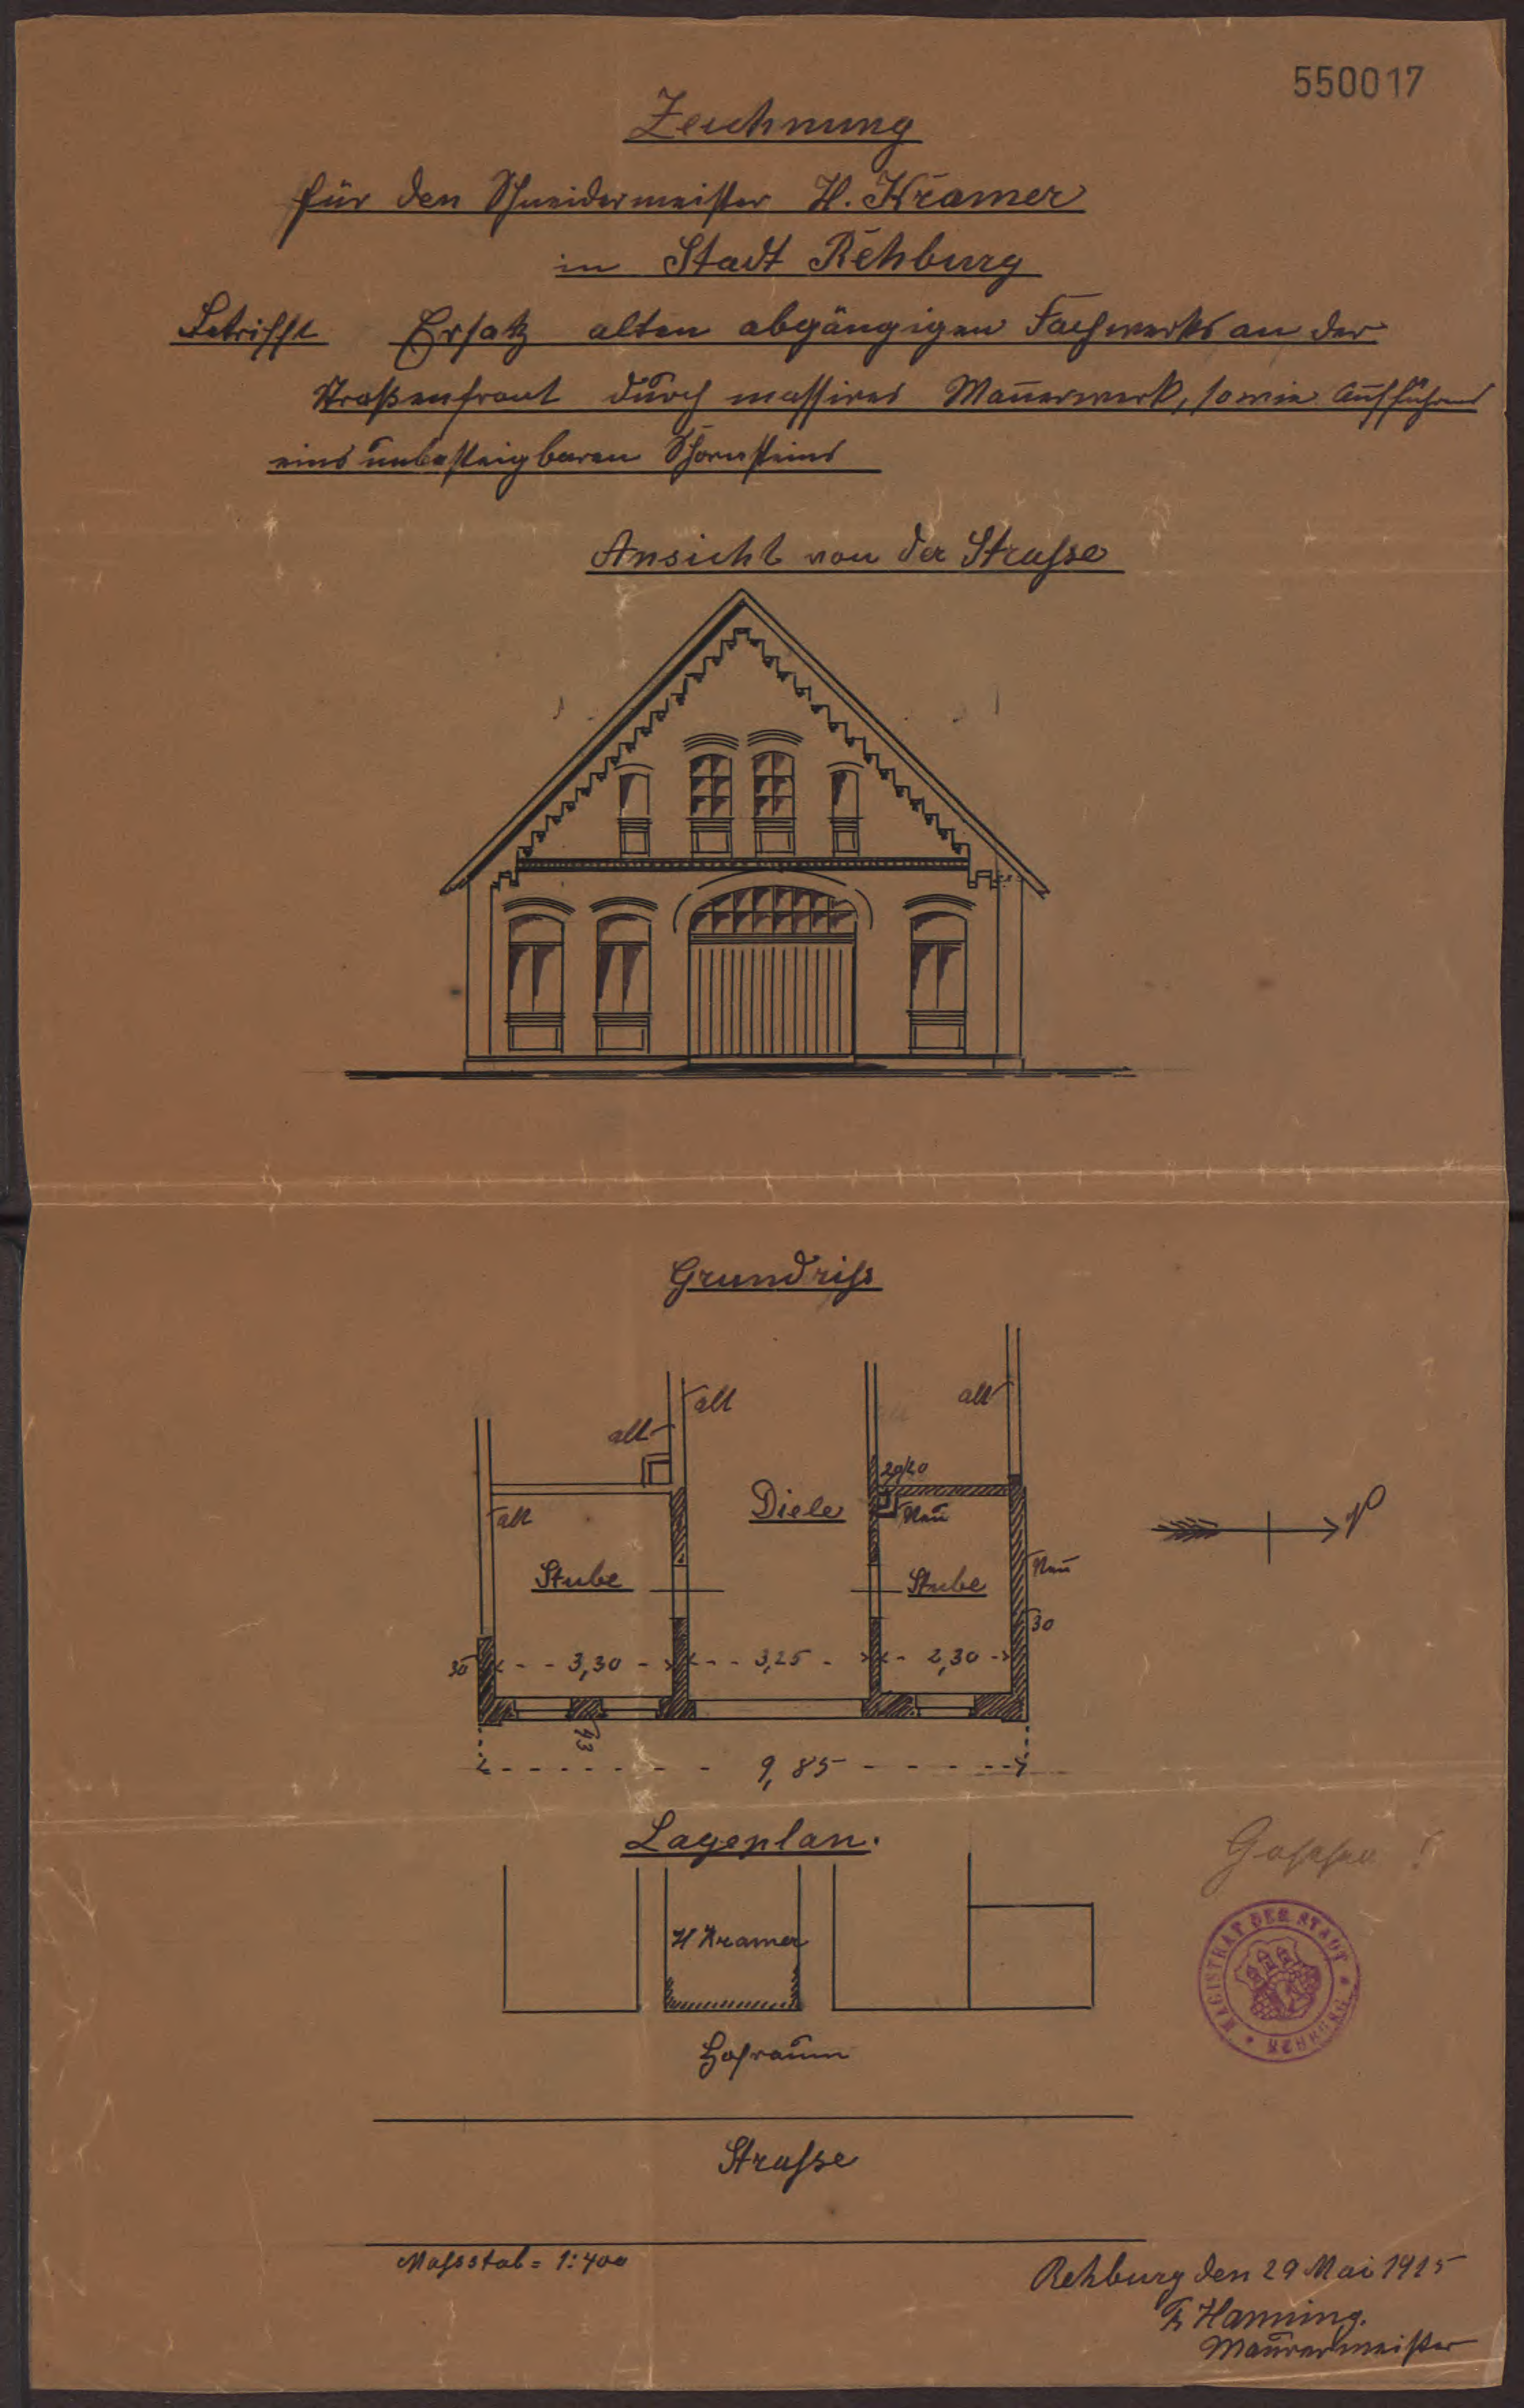 550017
Zeichnung
für den Schneidermeister H. Kramer
in Stadt Rehburg
Betrifft Ersatz alten abgängigen Fachwerks an der
Straßenfront durch massives Mauerwerk, sowie Aufführung
eines unbesteigbaren Schornsteins
Ansicht von der Strasse
Grundriss
alt
alt
alt
20/20
alt
Diele
Neu
N
Stube
Stube
Neu
30
30
3,30
3,25
2,30
43
9,85
Lageplan.
Gesehen!
H Kramer
MAGISTRAT DER STADT REHBURG
Hofraum
Strasse
Massstab = 1:400
Rehburg den 29 Mai 1915
Hanning.
Maurermeister